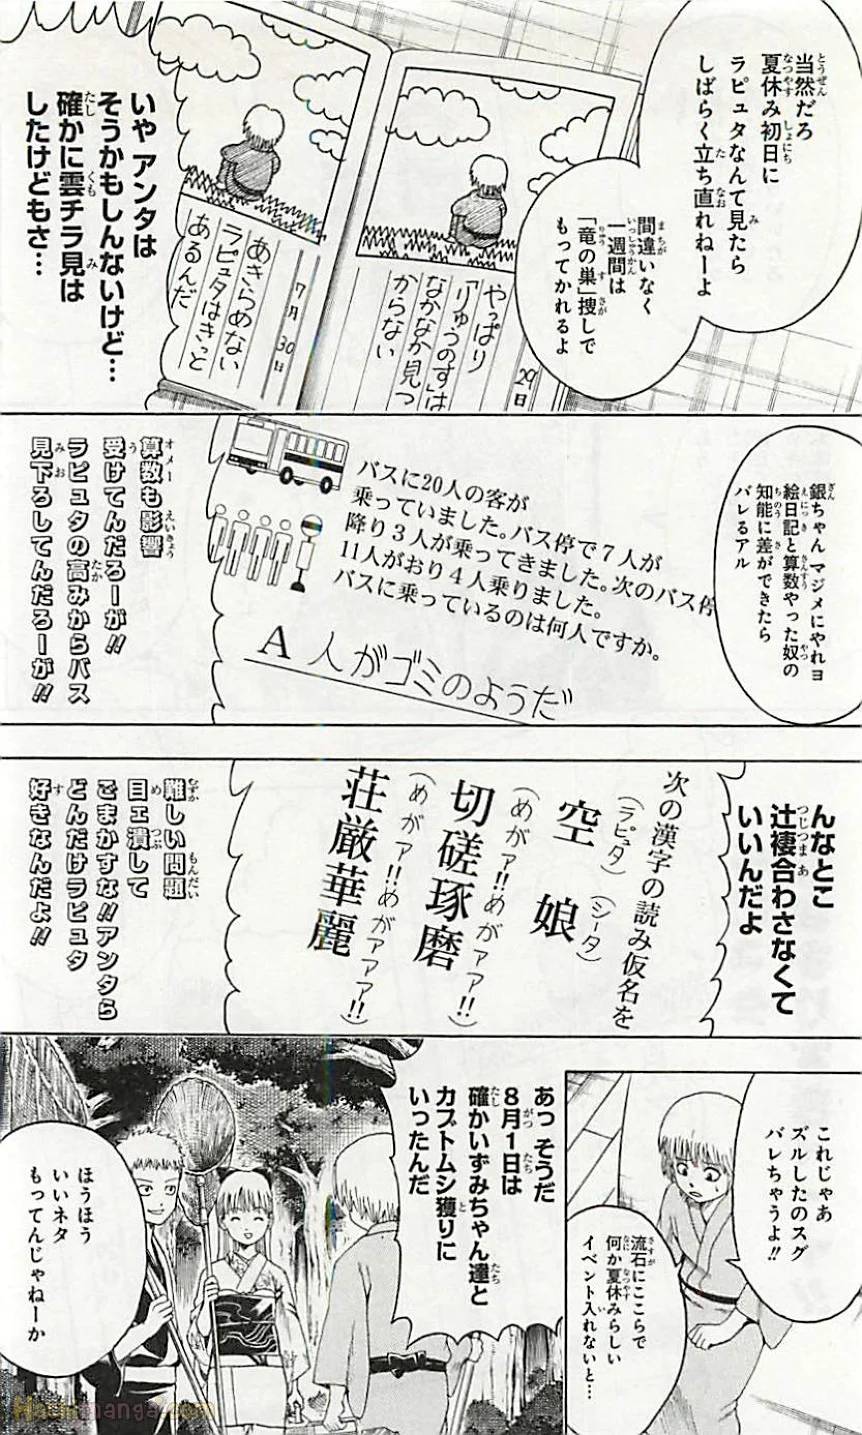 当然だろ
夏休み初日に
ラピュタなんて見たら
しばらく立ち直れねーよ
間違いなく
一週間は
「竜の巣」捜しで
もってかれるよ
29日
やっぱり
「りゅうのす」は
なかなか見つ
からない
7月30日
あきらめない
ラピュタはきっと
あるんだ
いや アンタは
そうかもしんないけど…
確かに雲チラ見は
したけどもさ…
銀ちゃん マジメにやれヨ
絵日記と算数やった奴の
知能に差ができたら
バレるアル
バスに20人の客が
乗っていました。バス停で7人が
降り3人が乗ってきました。次のバス停
11人がおり4人乗りました。
バスに乗っているのは何人ですか。
A 人がゴミのようだ
算数も影響
受けてんだろーが!!
ラピュタの高みからバス
見下ろしてんだろーが!!
んなとこ
辻褄合わさなくて
いいんだよ
次の漢字の読み仮名を
(ラピュタ) (シータ)
空 娘
(めがァ!!めがァァ!!)
切磋琢磨
(めがァ!!めがァァァ!!)
荘厳華麗
難しい問題
目ェ潰して
ごまかすな!!アンタら
どんだけラピュタ
好きなんだよ!!
これじゃあ
ズルしたのスグ
バレちゃうよ!!
流石にここらで
何か夏休みらしい
イベント入れないと…
あっ そうだ
8月1日は
確かいずみちゃん達と
カブトムシ獲りに
いったんだ
ほうほう
いいネタ
もってんじゃねーか
Hachimanga.com